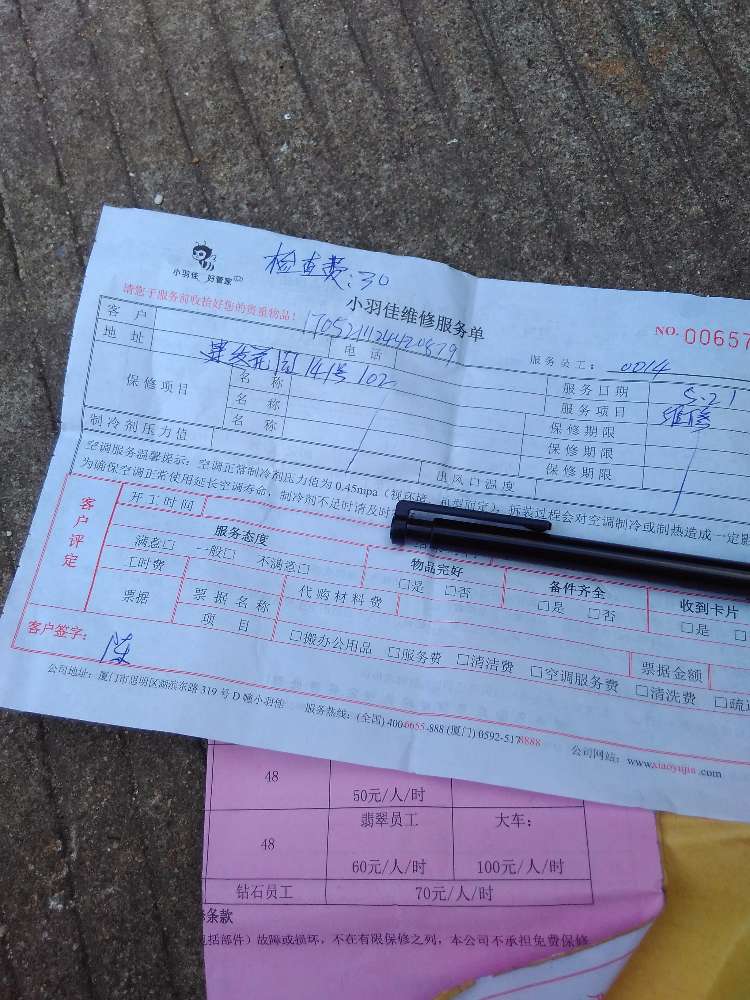 检查费:30
小羽佳 好管家
请您于服务前收拾好您的贵重物品!
小羽佳维修服务单
NO. 00657
客户 电话
服务员工: 0014
地址 141号102
服务日期 5.21
保修项目 名称 服务项目 维修
名称 保修期限
名称 保修期限
制冷剂压力值 出风口温度 保修期限
空调服务温馨提示:空调正常制冷剂压力值为0.45mpa 拆装过程会对空调制冷或制热造成一定影
为确保空调正常使用延长空调寿命,制冷剂不足时请及时
客户评定
开工时间
服务态度 物品完好 备件齐全 收到卡片
满意□ 一般□ 不满意□ □是 □否 □是 □否 □是
□时费 代购材料费
票据 票据名称 项目
□搬办公用品 □服务费 □清洁费 □空调服务费 □清洗费 □疏通
票据金额
客户签字: 陈
公司地址:厦门市思明区湖滨东路319号D幢小羽佳 服务热线:(全国) 400-6655-888 (厦门) 0592-5178888
公司网站:www.xiaoyujia.com
48 50元/人/时
48 翡翠员工 大车:
60元/人/时 100元/人/时
钻石员工 70元/人/时
条款
包括部件)故障或损坏,不在有限保修之列,本公司不承担免费保修